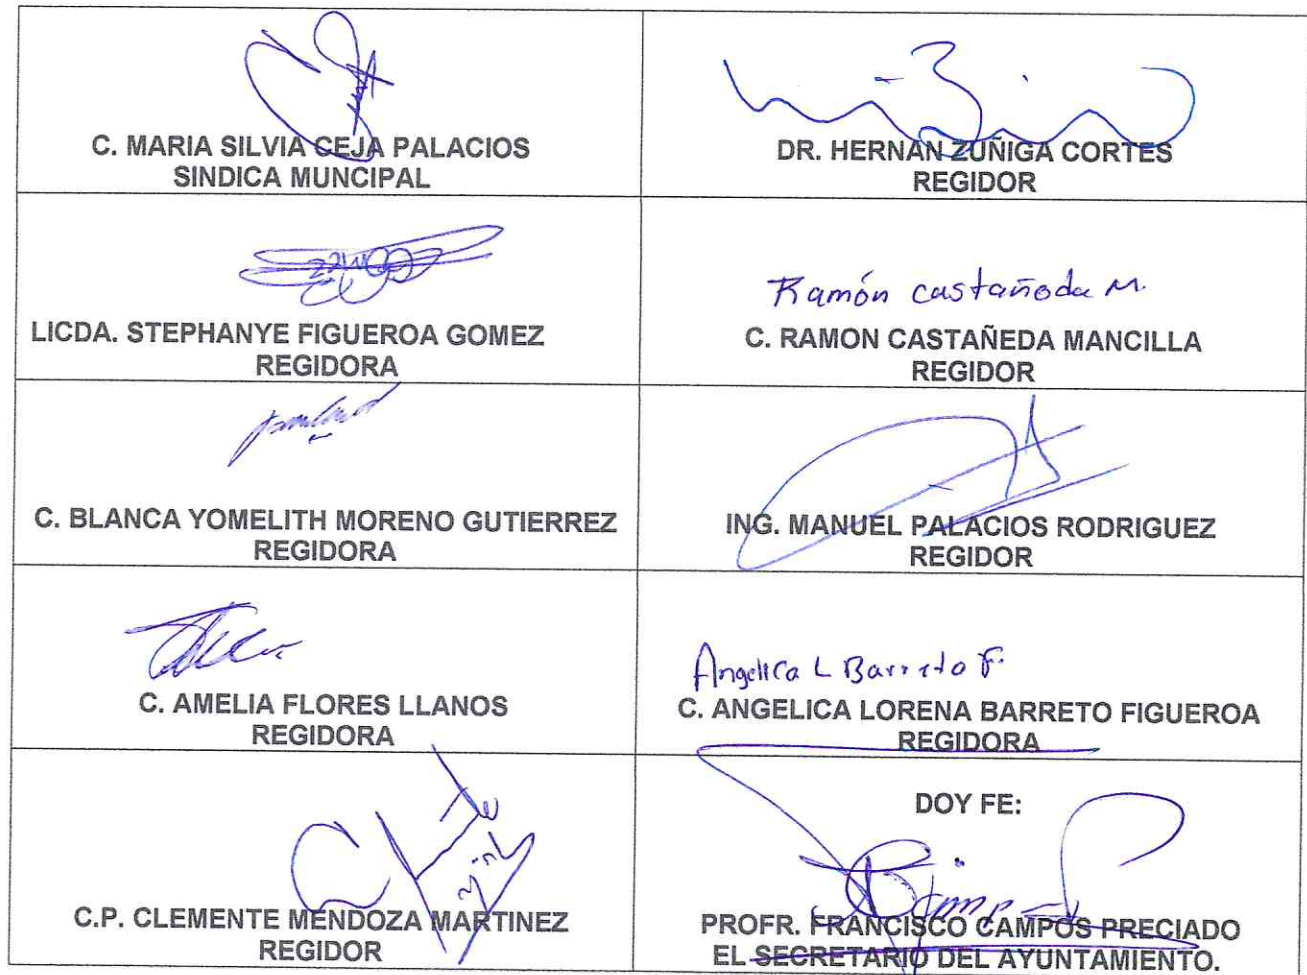 C. MARIA SILVIA CEJA PALACIOS
SINDICA MUNCIPAL
DR. HERNAN ZUÑIGA CORTES
REGIDOR
LICDA. STEPHANYE FIGUEROA GOMEZ
REGIDORA
Ramón castañeda M.
C. RAMON CASTAÑEDA MANCILLA
REGIDOR
C. BLANCA YOMELITH MORENO GUTIERREZ
REGIDORA
ING. MANUEL PALACIOS RODRIGUEZ
REGIDOR
C. AMELIA FLORES LLANOS
REGIDORA
Angelica L Barreto F.
C. ANGELICA LORENA BARRETO FIGUEROA
REGIDORA
C.P. CLEMENTE MENDOZA MARTINEZ
REGIDOR
DOY FE:
PROFR. FRANCISCO CAMPOS PRECIADO
EL SECRETARIO DEL AYUNTAMIENTO.